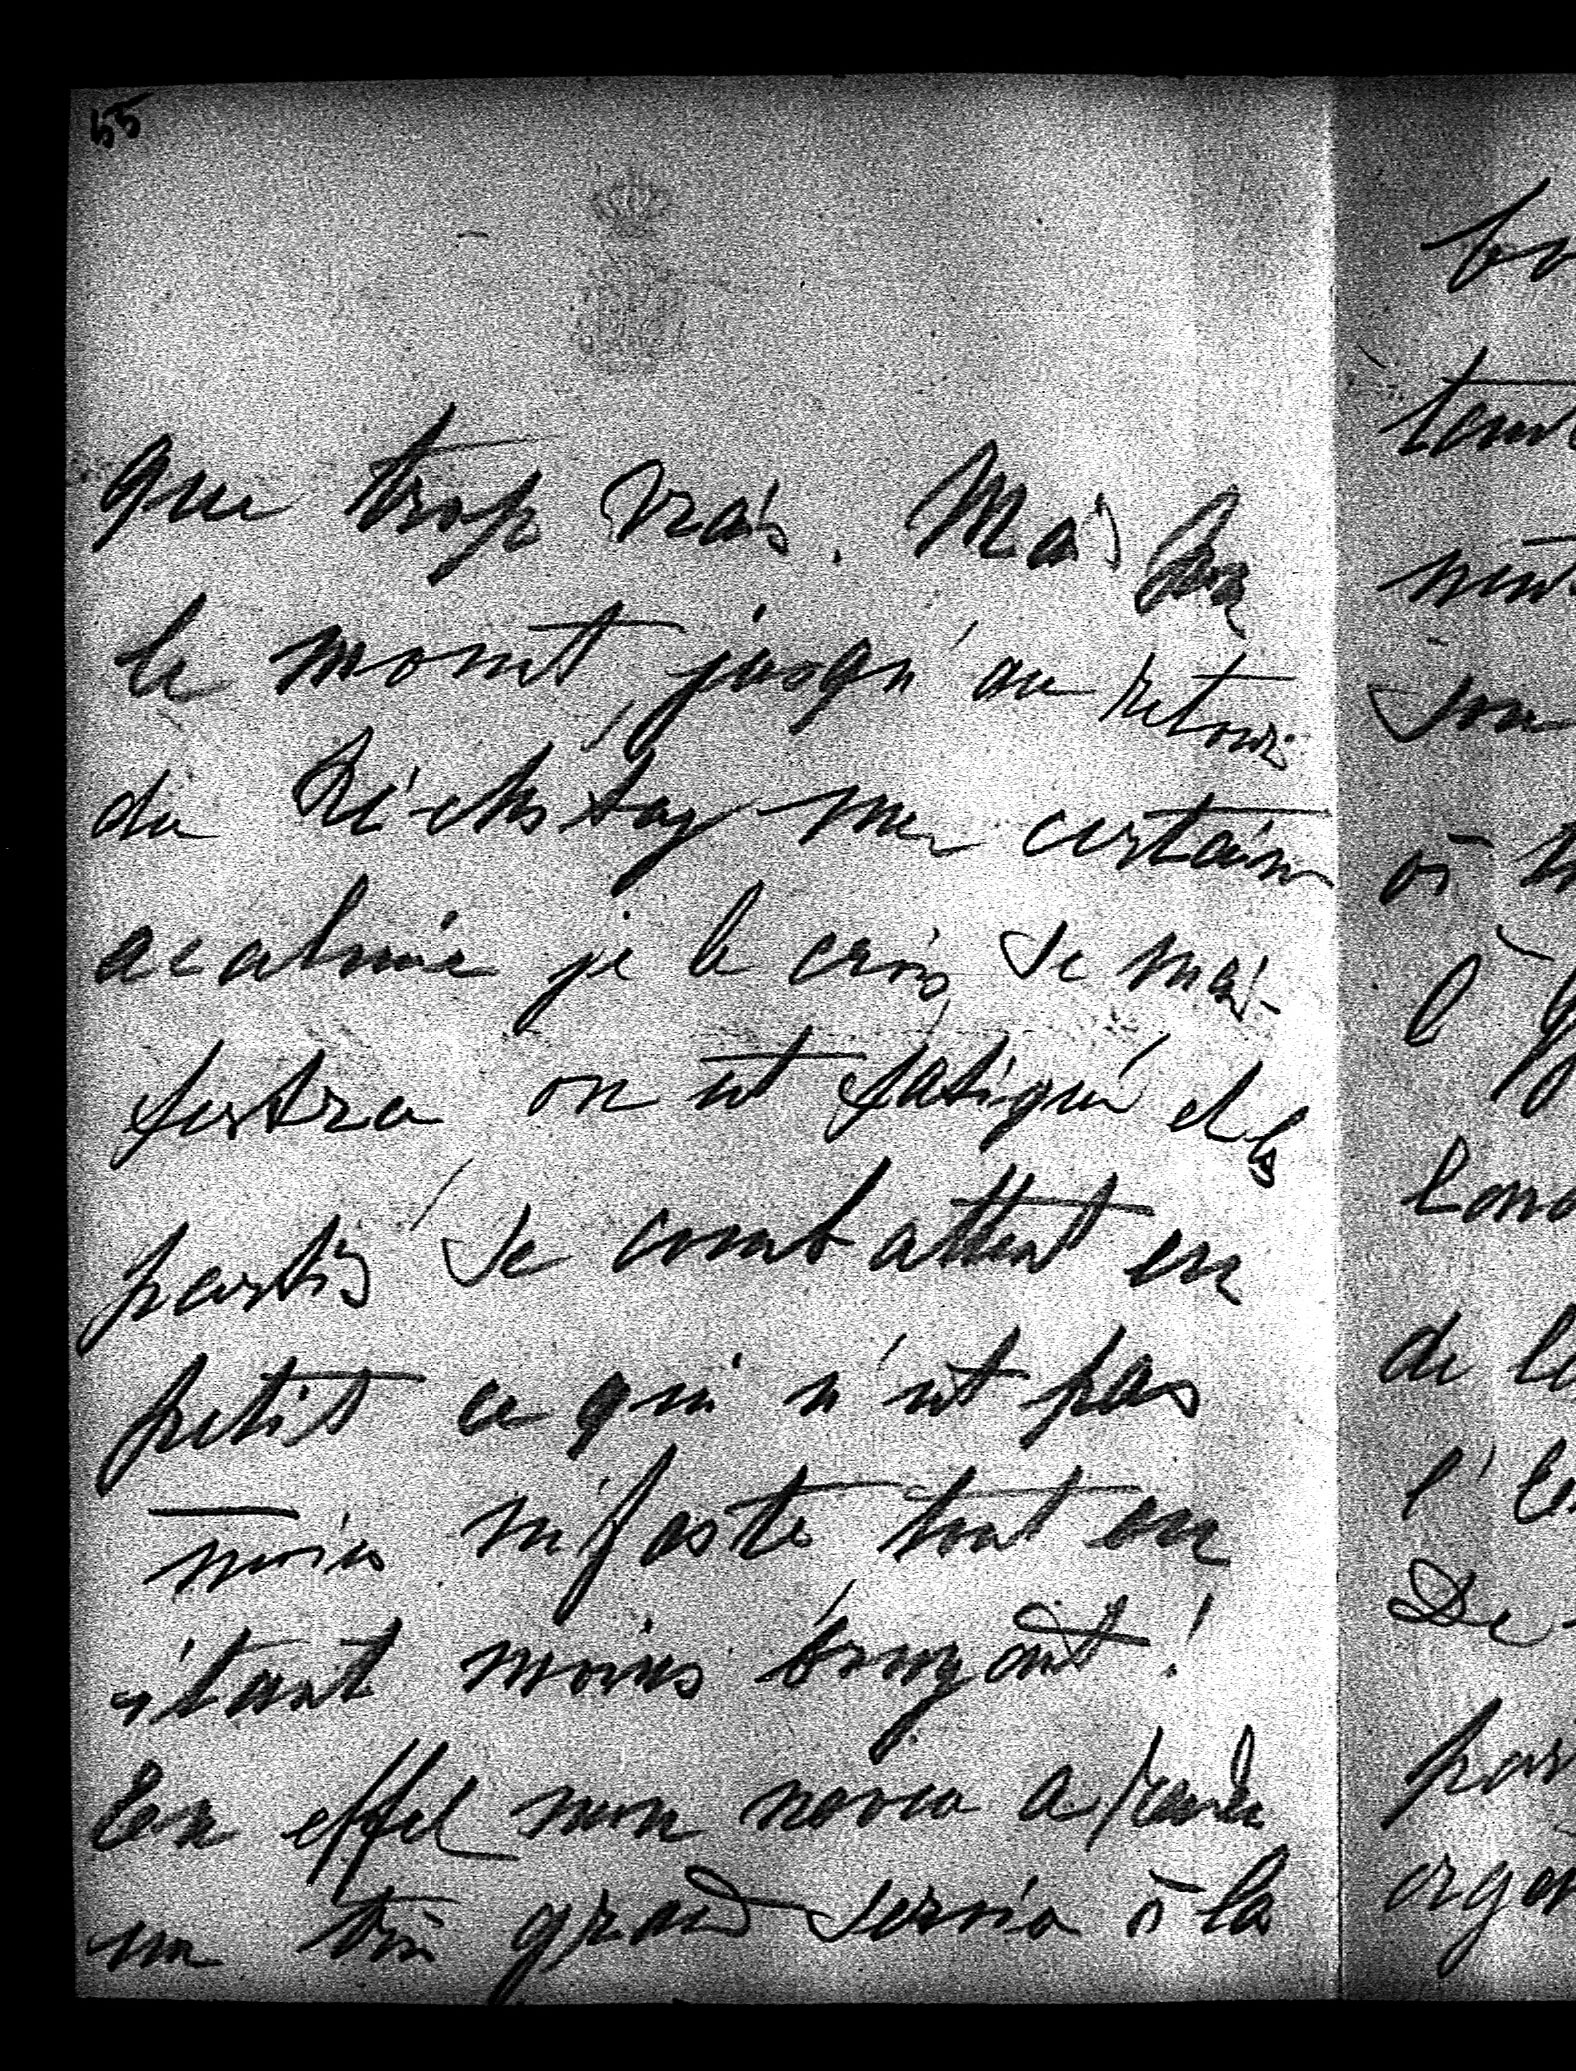 55
que trop vrais. Mais pour
le momt jusqu'au retour
du Reichstag une certaine
acalmie je le crois se mai-
festera on est fatigué et les
partis se combattent en
petit ce qui n'est pas
moins néfaste tout en
étant moins bruyant!
En effet mon neveu a rendu
un très grand service à la
tout
son
à
l'
de la
De
par